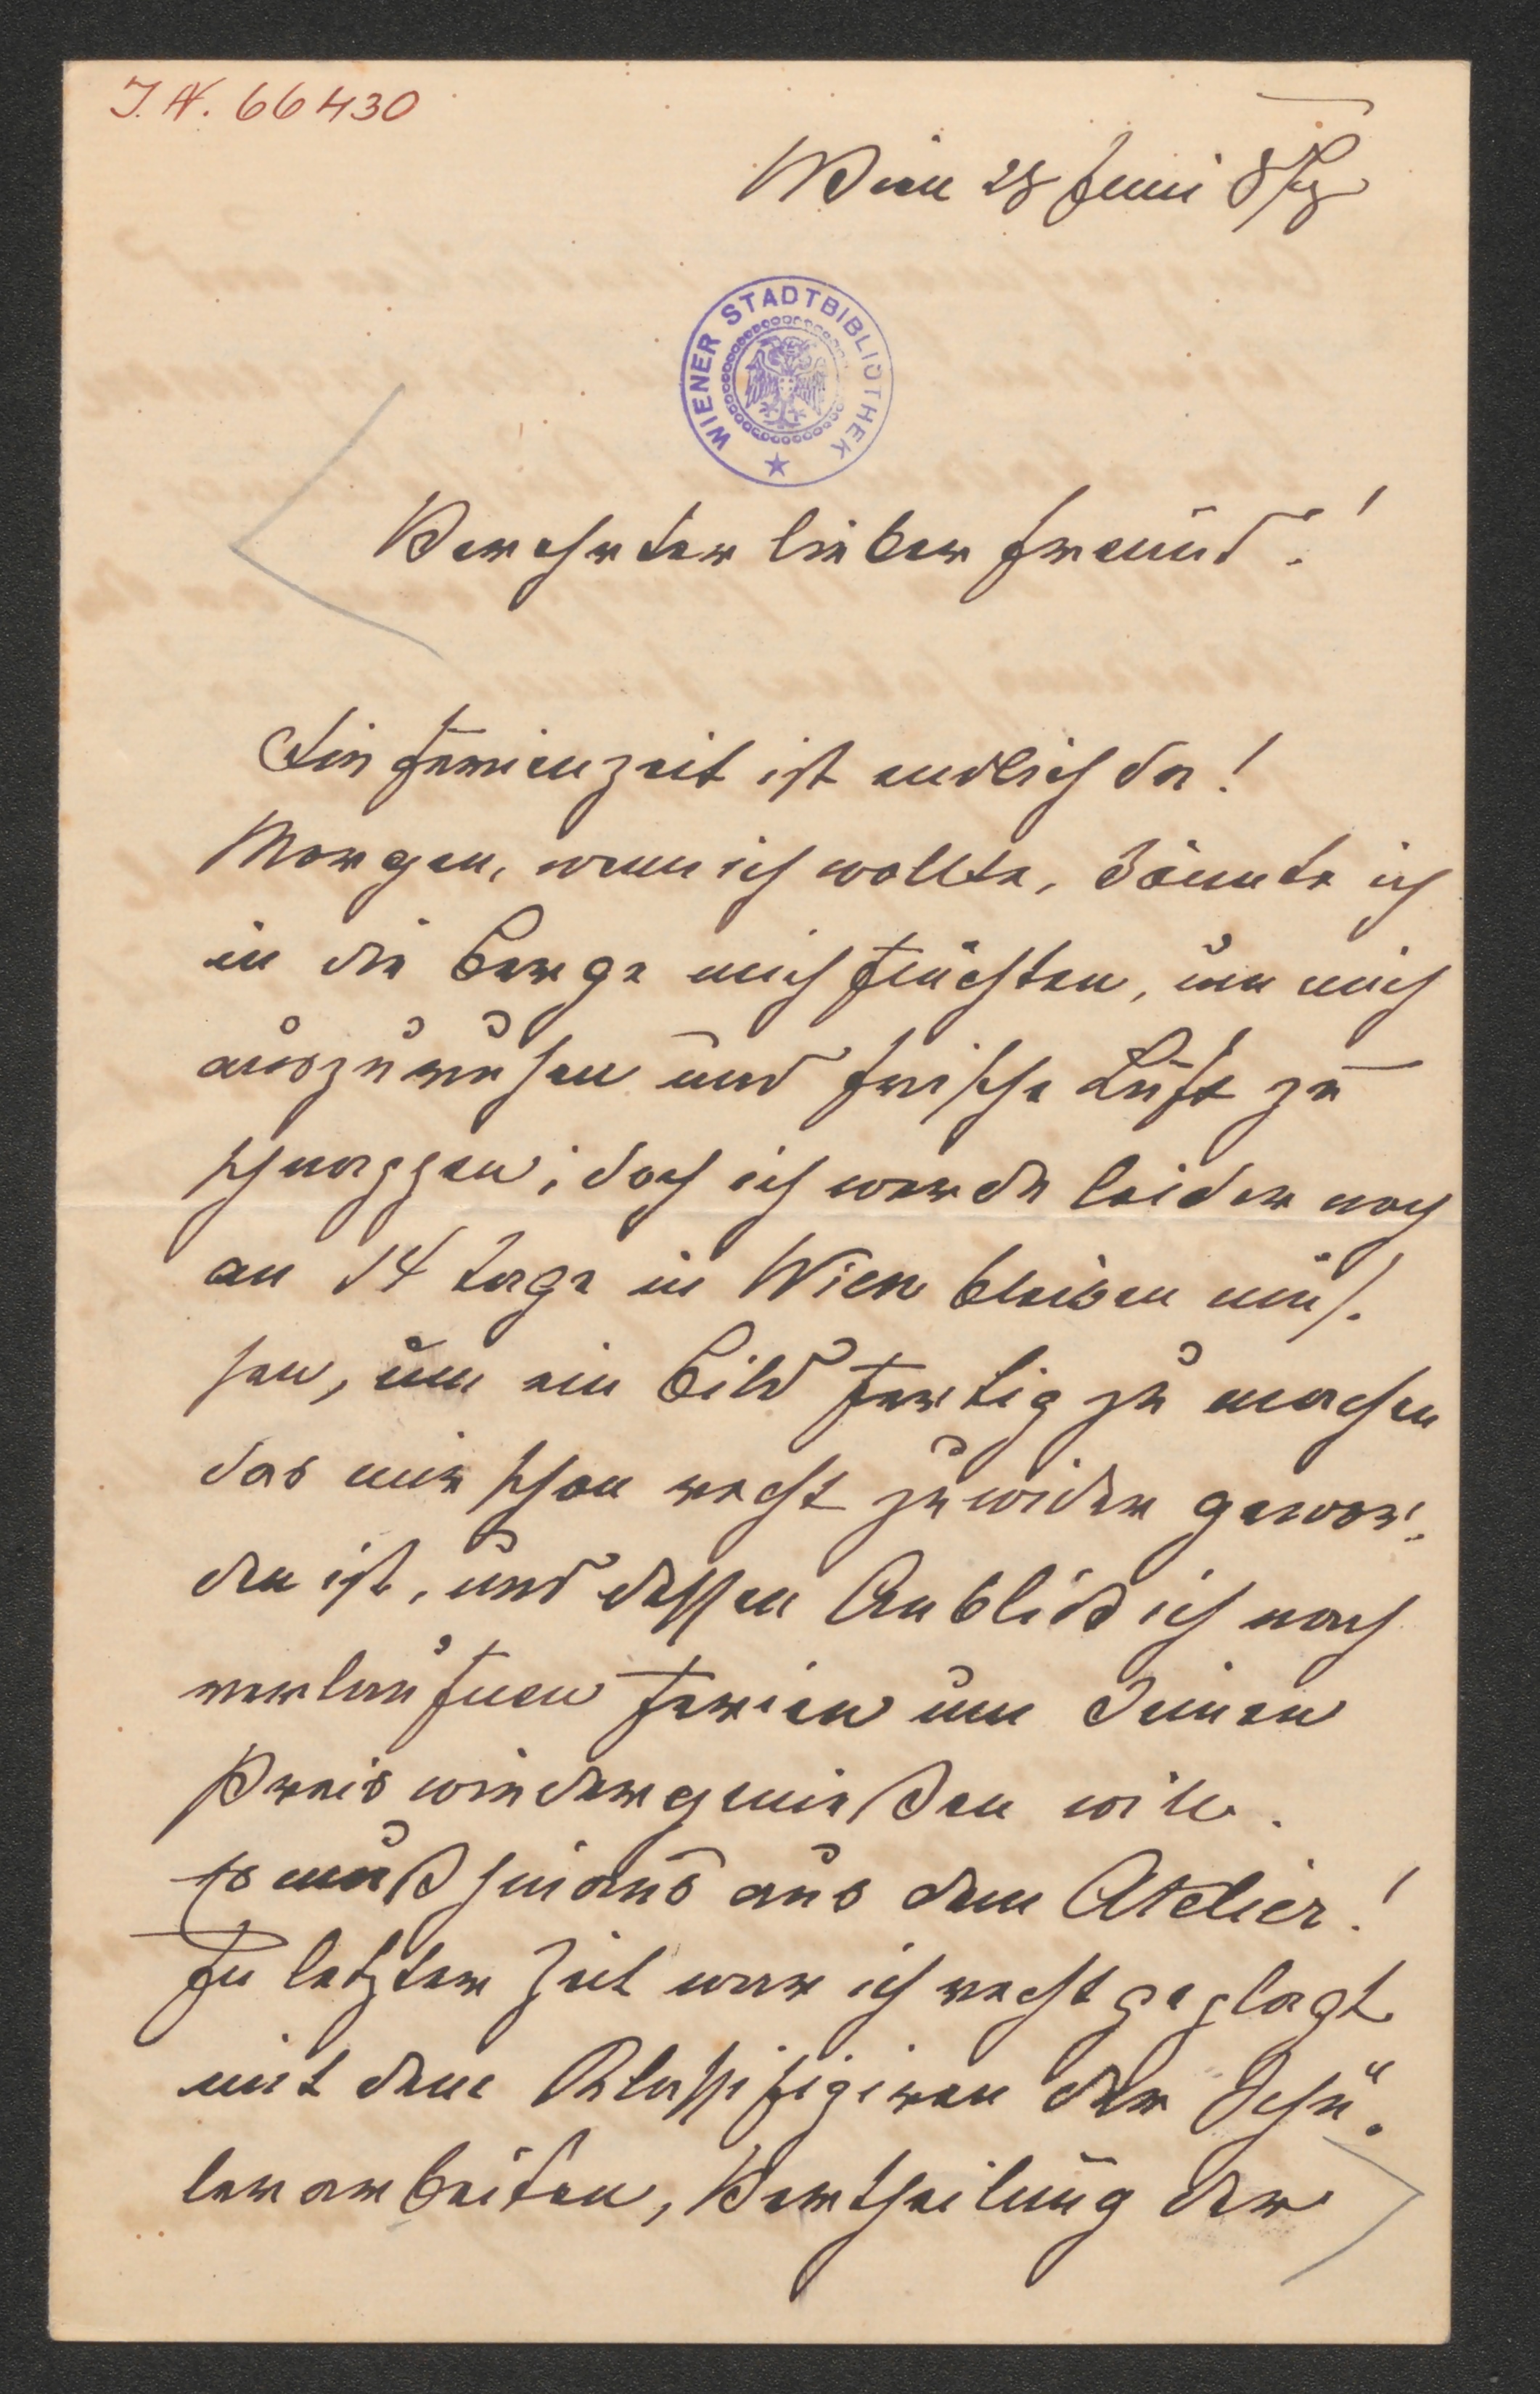 I. N. 66430
Wien 28 Juni
WIENER STADTBIBLIOTHEK
Verehrter lieber Freund!
Die Ferienzeit ist endlich da!
Morgen, wenn ich wollte, könnte ich
in die Berge mich flüchten, um mich
auszuruhen und frische Luft zu
schnappen; doch ich werde leider noch
an 14 Tage in Wien bleiben müs-
sen, um ein Bild fertig zu machen
das mir schon recht zuwider gewor-
den ist, und dessen Anblick ich nach
verlaufnen Ferien um keinen
Preis wiedergenießen will.
Es muß hinaus aus dem Atelier!
In letzter Zeit war ich recht geplagt
mit dem Klassifiziren der Schü-
lerarbeiten, Vertheilung der